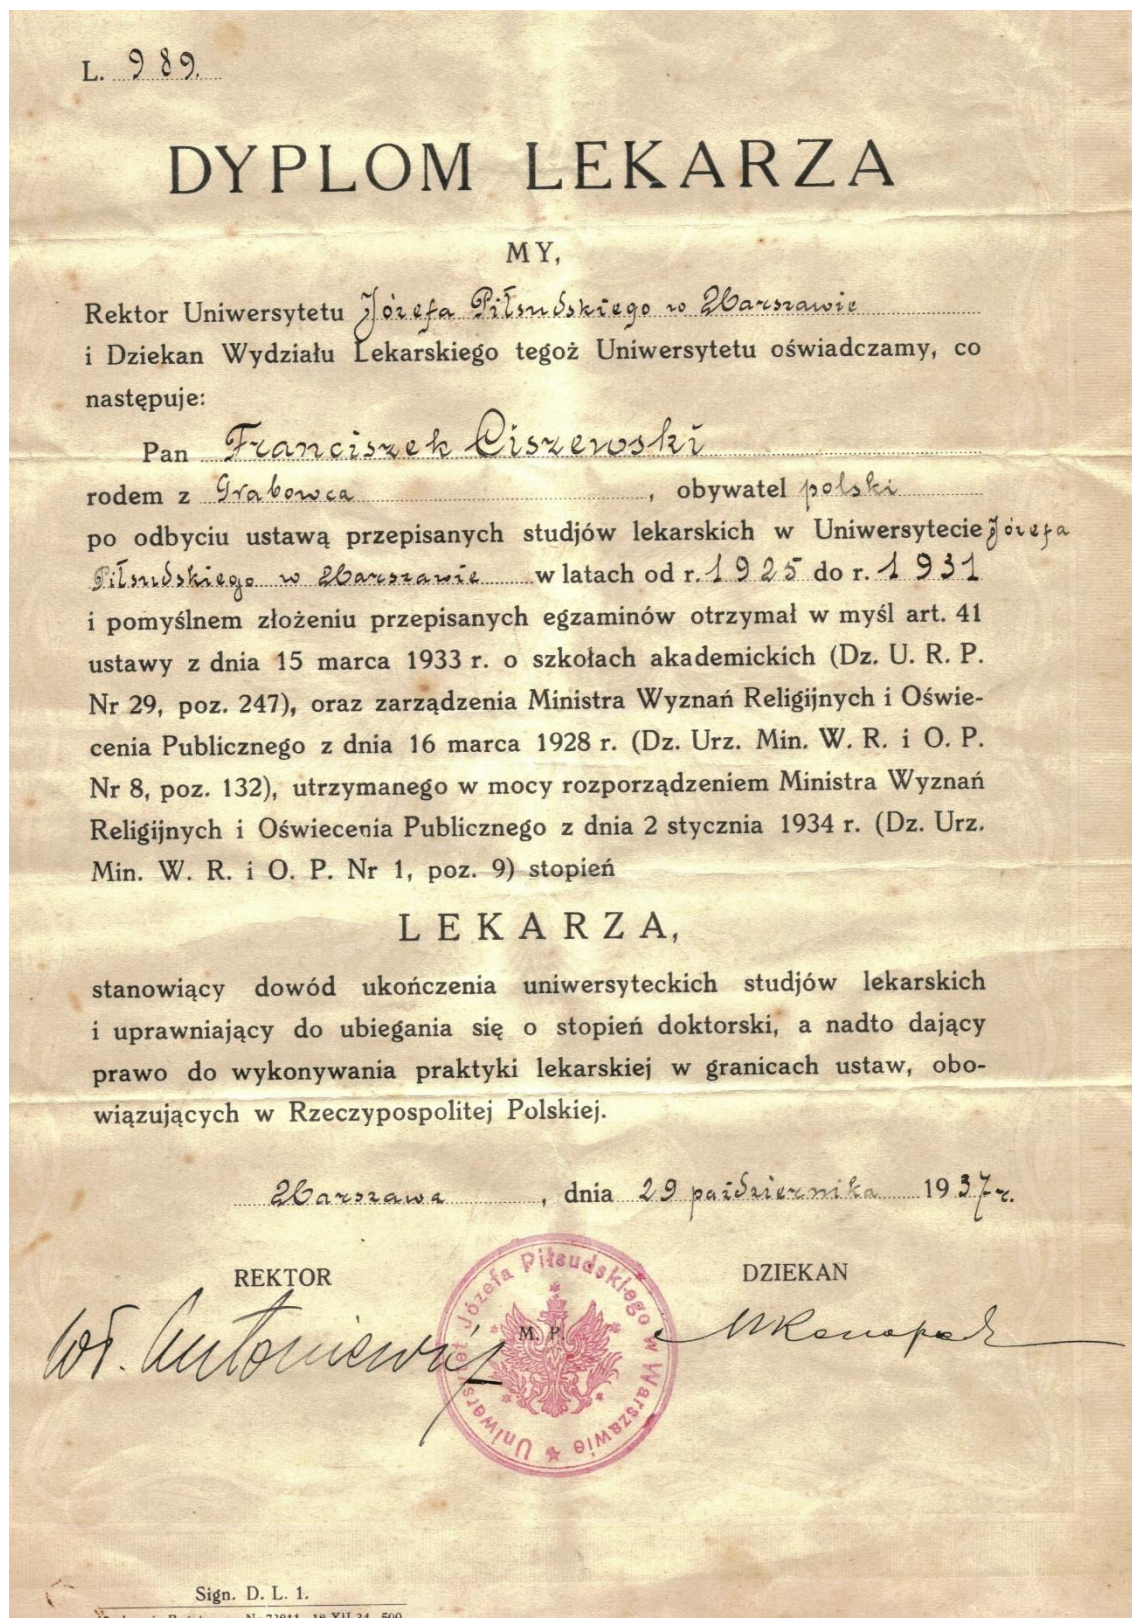 L. 989.
DYPLOM LEKARZA
MY,
Rektor Uniwersytetu Józefa Piłsudskiego w Warszawie
i Dziekan Wydziału Lekarskiego tegoż Uniwersytetu oświadczamy, co
następuje:
Pan Franciszek Ciszewski
rodem z Grabowca, obywatel polski
po odbyciu ustawą przepisanych studjów lekarskich w Uniwersytecie Józefa
Piłsudskiego w Warszawie w latach od r. 1925 do r. 1931
i pomyślnem złożeniu przepisanych egzaminów otrzymał w myśl art. 41
ustawy z dnia 15 marca 1933 r. o szkołach akademickich (Dz. U. R. P.
Nr 29, poz. 247), oraz zarządzenia Ministra Wyznań Religijnych i Oświe-
cenia Publicznego z dnia 16 marca 1928 r. (Dz. Urz. Min. W. R. i O. P.
Nr 8, poz. 132), utrzymanego w mocy rozporządzeniem Ministra Wyznań
Religijnych i Oświecenia Publicznego z dnia 2 stycznia 1934 r. (Dz. Urz.
Min. W. R. i O. P. Nr 1, poz. 9) stopień
LEKARZA,
stanowiący dowód ukończenia uniwersyteckich studjów lekarskich
i uprawniający do ubiegania się o stopień doktorski, a nadto dający
prawo do wykonywania praktyki lekarskiej w granicach ustaw, obo-
wiązujących w Rzeczypospolitej Polskiej.
Warszawa, dnia 29 października 1937 r.
REKTOR DZIEKAN
Wł. Antoniewicz M. P. MKonopack
Uniwersytet Józefa Piłsudskiego w Warszawie
Sign. D. L. 1.